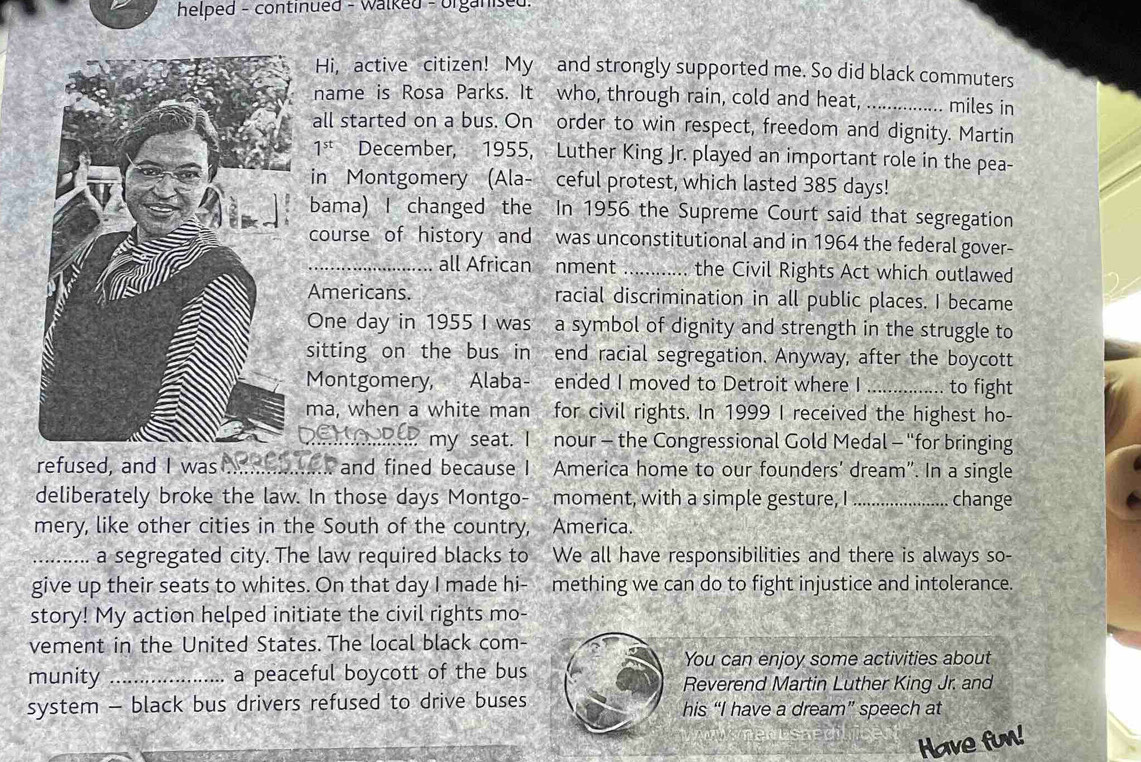 helped - continued - walked - organised.
Hi, active citizen! My
name is Rosa Parks. It
all started on a bus. On
1st December, 1955,
in Montgomery (Ala-
bama) I changed the
course of history and
...................... all African
Americans.
One day in 1955 I was
sitting on the bus in
Montgomery, Alaba-
ma, when a white man
DEMANDED my seat. I
refused, and I was ARRESTED and fined because I
deliberately broke the law. In those days Montgo-
mery, like other cities in the South of the country,
.......... a segregated city. The law required blacks to
give up their seats to whites. On that day I made hi-
story! My action helped initiate the civil rights mo-
vement in the United States. The local black com-
munity .................... a peaceful boycott of the bus
system – black bus drivers refused to drive buses
and strongly supported me. So did black commuters
who, through rain, cold and heat, .............. miles in
order to win respect, freedom and dignity. Martin
Luther King Jr. played an important role in the pea-
ceful protest, which lasted 385 days!
In 1956 the Supreme Court said that segregation
was unconstitutional and in 1964 the federal gover-
nment ............ the Civil Rights Act which outlawed
racial discrimination in all public places. I became
a symbol of dignity and strength in the struggle to
end racial segregation. Anyway, after the boycott
ended I moved to Detroit where I .............. to fight
for civil rights. In 1999 I received the highest ho-
nour – the Congressional Gold Medal – "for bringing
America home to our founders' dream". In a single
moment, with a simple gesture, I .................... change
America.
We all have responsibilities and there is always so-
mething we can do to fight injustice and intolerance.
You can enjoy some activities about
Reverend Martin Luther King Jr. and
his "I have a dream" speech at
Have fun!